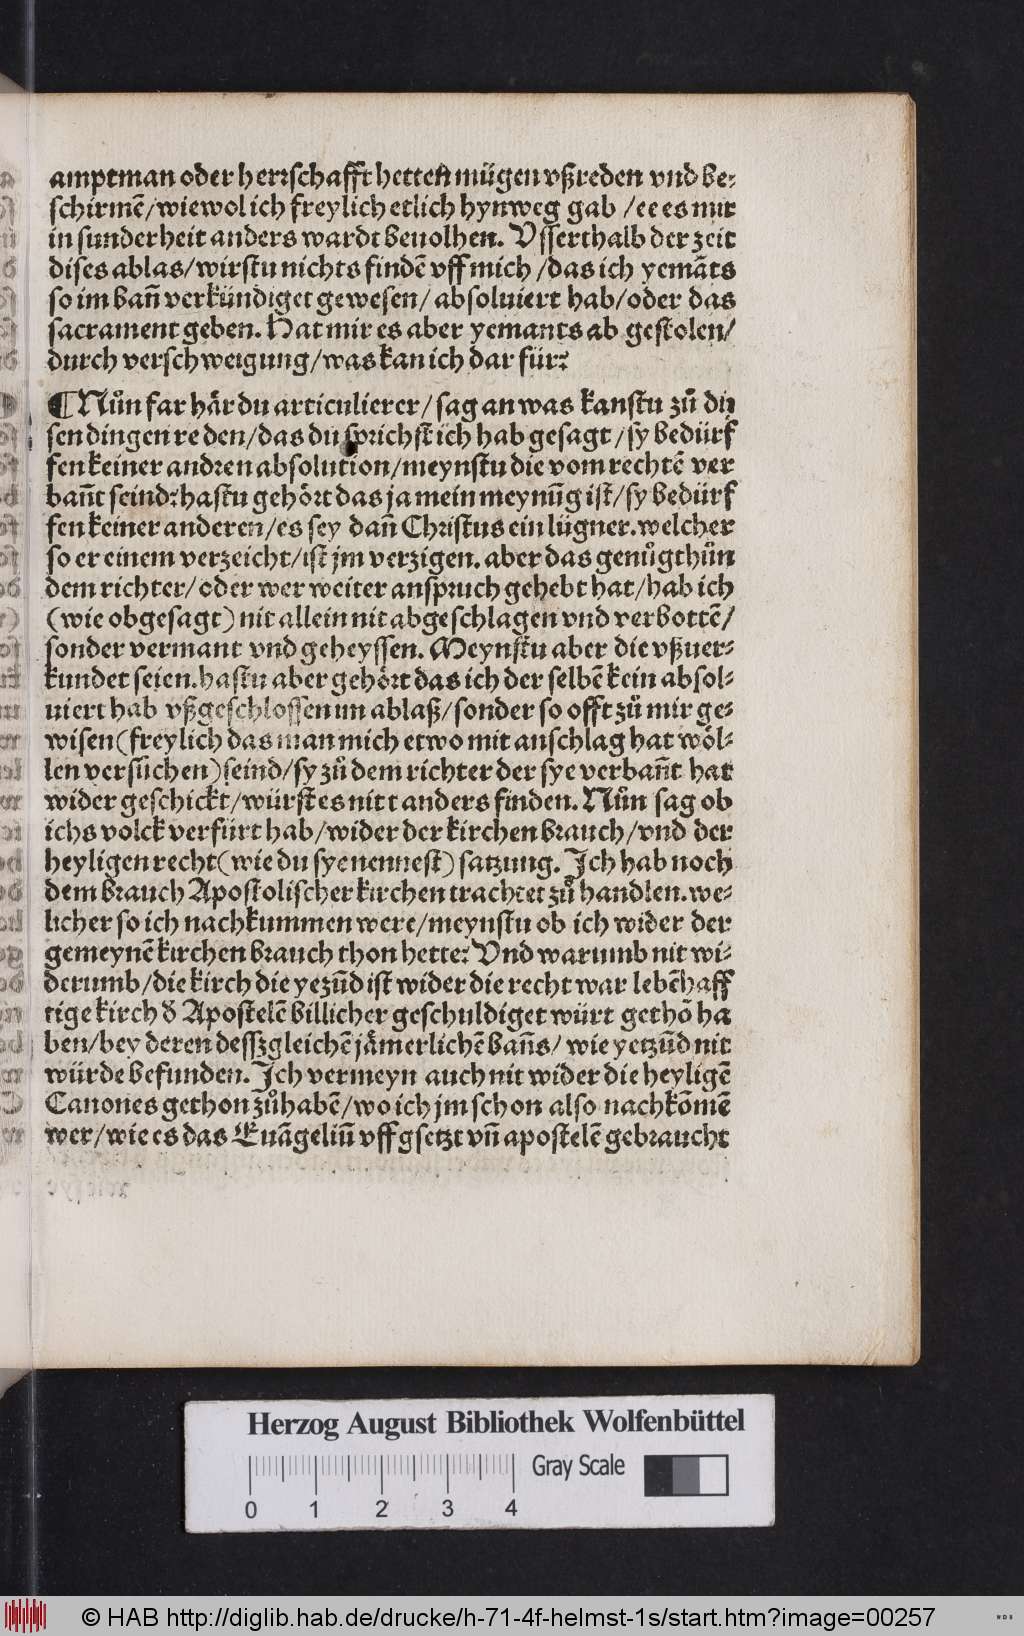 amptman oder herrschafft hetten mügen vßreden vnd be⸗
schirmē/wiewol ich freylich etlich hynweg gab /ee es mir
in sunderheit anders wardt beuolhen. Vsserthalb der zeit
dises ablas/wirstu nichts findē vff mich /das ich yemāts
so im bañ verkündiget gewesen/ absoluiert hab/oder das
sacrament geben. Hat mir es aber yemants ab gestolen/
durch verschweigung/was kan ich dar für?
¶Nůn far här du articulierer/sag an was kanstu zů di
sen dingen re den/das du sprichst ich hab gesagt/sy bedürf
fen keiner andren absolution/meynstu die vom rechtē ver
bañt seind?hastu gehört das ja mein meynũg ist/sy bedürf
fen keiner anderen/es sey dañ Christus ein lügner.welcher
so er einem verzeicht/ist jm verzigen. aber das genůgthůn
dem richter/oder wer weiter anspruch gehebt hat/hab ich
(wie obgesagt) nit allein nit abgeschlagen vnd verbottē/
sonder vermant vnd geheyssen. Meynstu aber die vßuer⸗
kundet seien.hastu aber gehört das ich der selbē kein absol⸗
uiert hab vßgeschlossen im ablaß/sonder so offt zů mir ge⸗
wisen(freylich das man mich etwo mit anschlag hat wöl⸗
len versüchen)seind/sy zů dem richter der sye verbañt hat
wider geschickt/würst es nit t anders finden. Nůn sag ob
ichs volck verfürt hab/wider der kirchen brauch/vnd der
heyligen recht(wie du sye nennest) satzung. Ich hab noch
dem brauch Apostolischer kirchen trachtet zů handlen.we⸗
licher so ich nachkummen were/meynstu ob ich wider der
gemeynē kirchen brauch thon hette? Vnd warumb nit wi⸗
derumb/die kirch die yezũd ist wider die recht war lebēhaff
tige kirch ď Apostelē billicher geschuldiget würt gethō ha
ben/bey deren dessgleichē jämerlichē bañs/ wie yetzũd nit
würde befunden. Ich vermeyn auch nit wider die heyligē
Canones gethon zůhabē/wo ich jm schon also nachkōmē
wer/wie es das Euāgeliũ vff gsetzt vñ apostelē gebraucht
Herzog August Bibliothek Wolfenbüttel
Gray Scale
0 1 2 3 4
© HAB http://diglib.hab.de/drucke/h-71-4f-helmst-1s/start.htm?image=00257